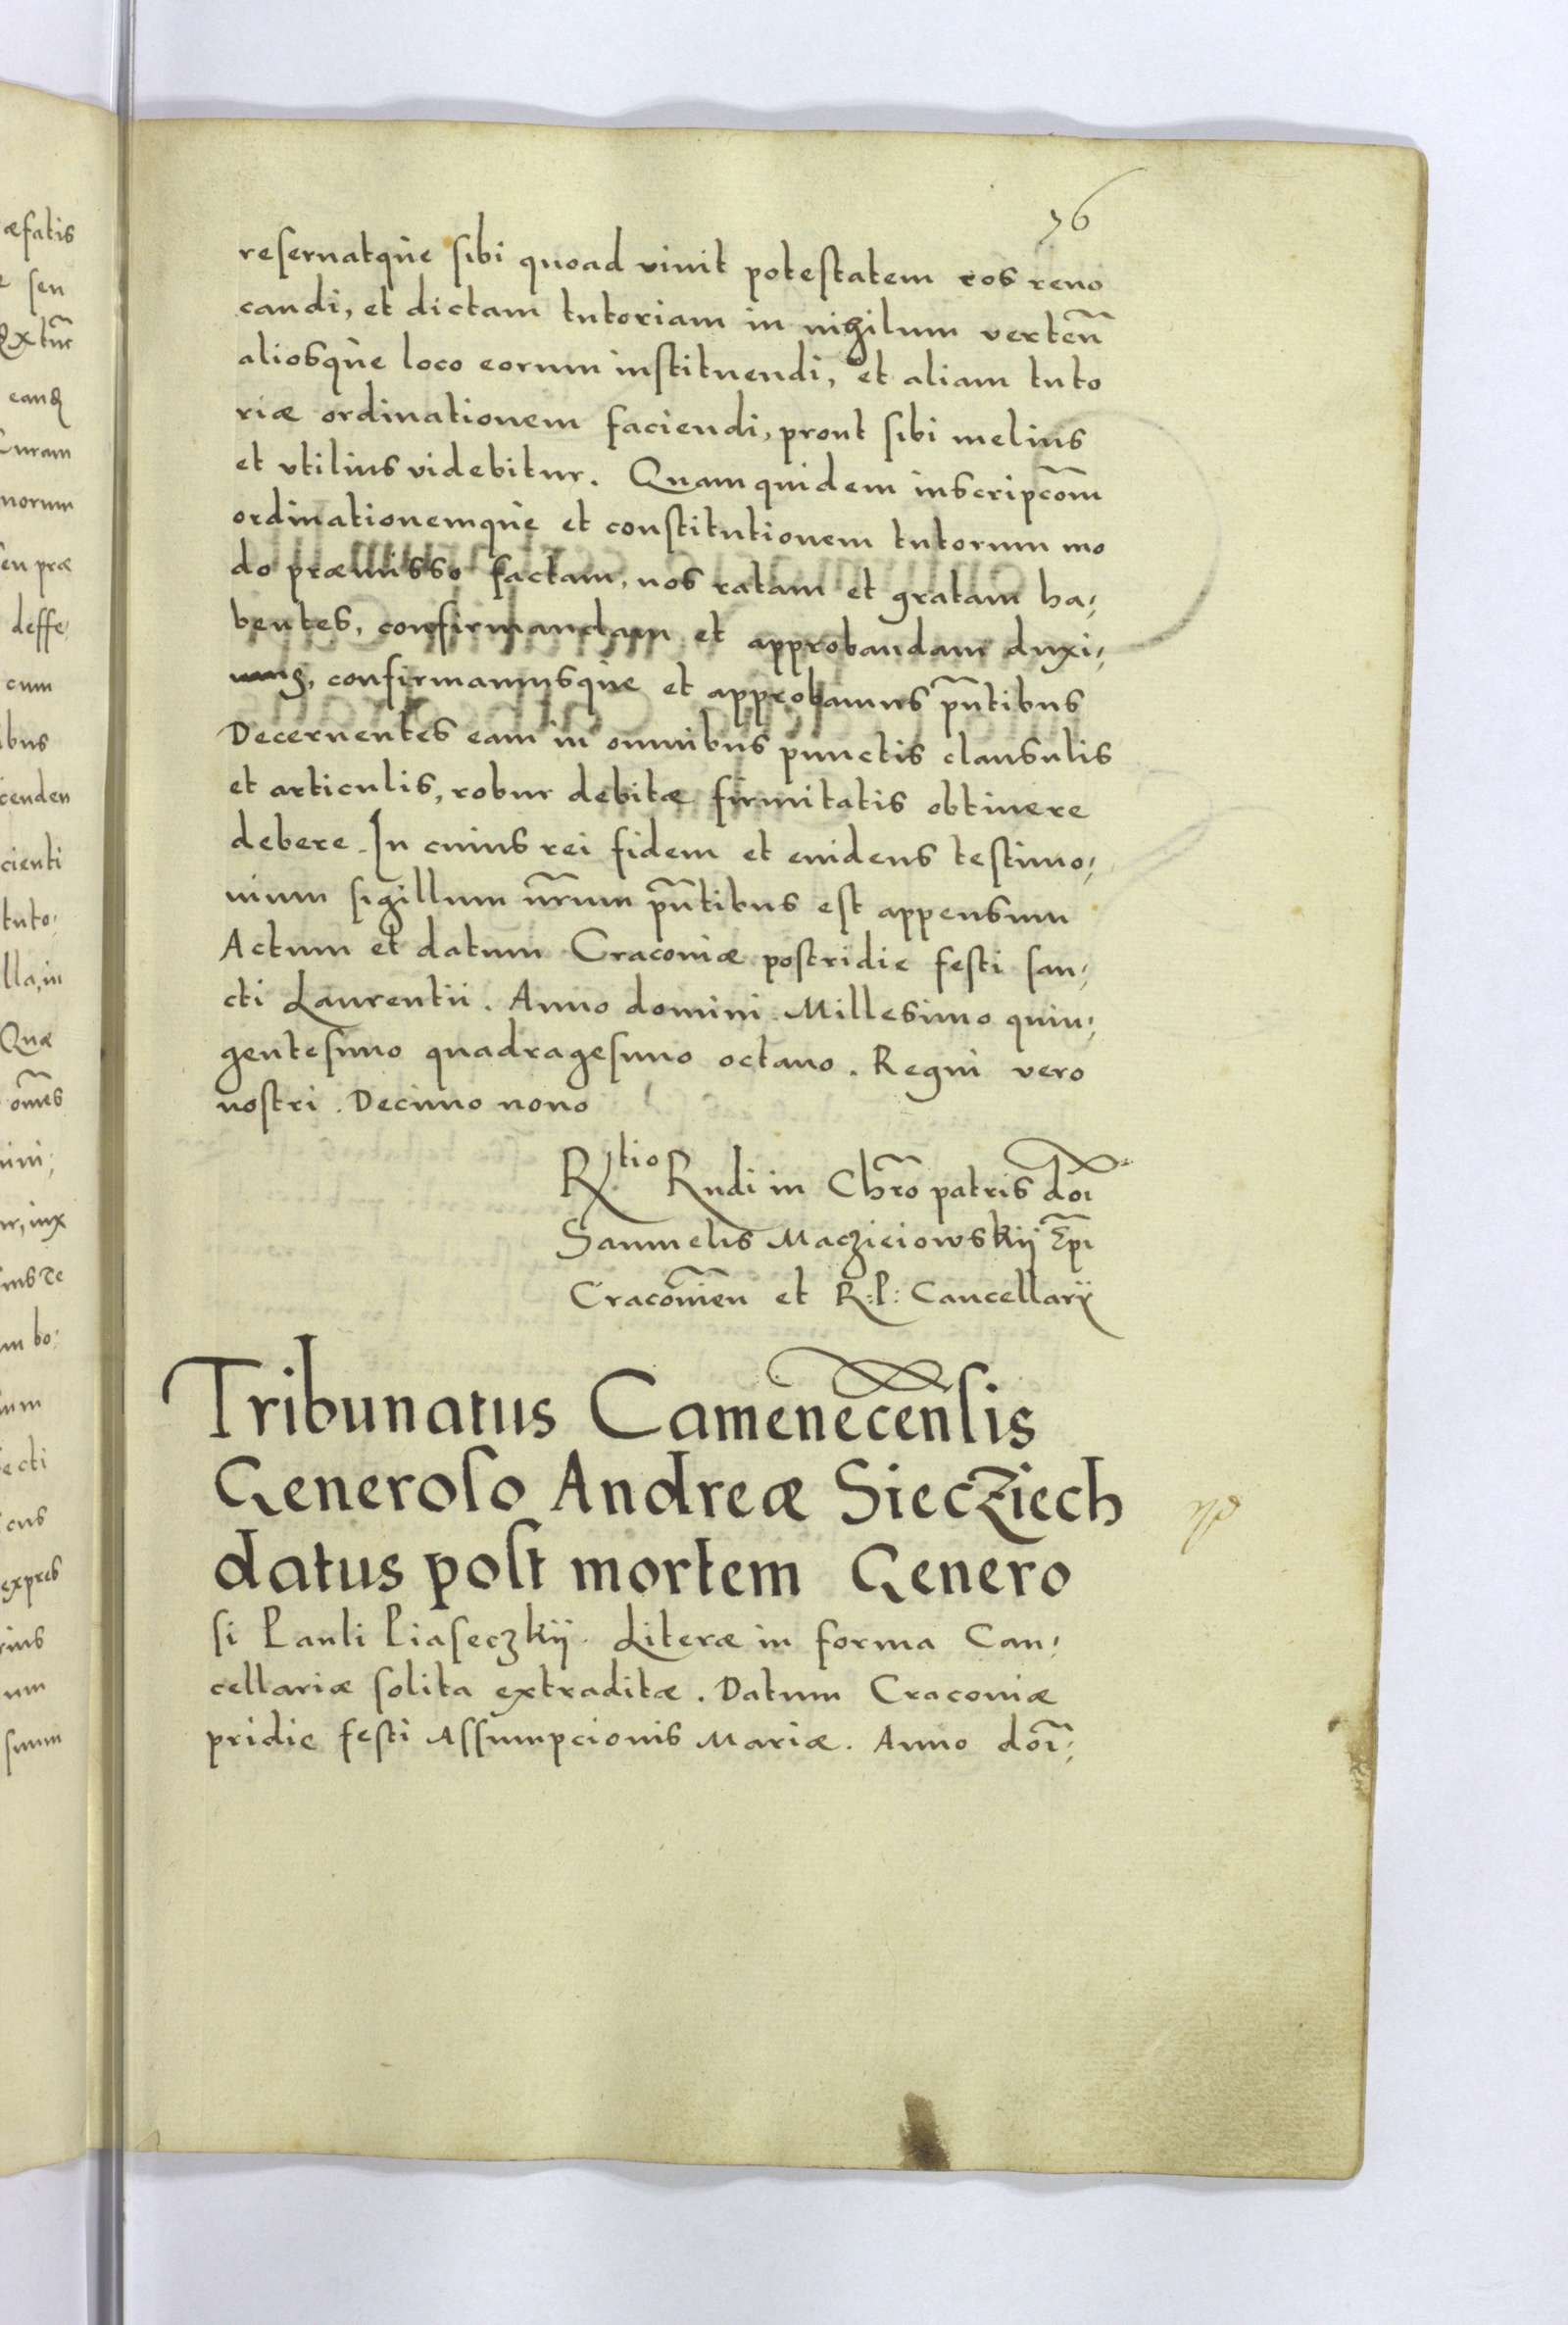 76
reseruatque sibi quoad viuit potestatem eos reuo
candi, et dictam tutoriam in nihilum verten̄
aliosque loco eorum instituendi, et aliam tuto
riæ ordinationem faciendi, prout sibi melius
et vtilius videbitur. Quamquidem inscripc̄om
ordinationemque et constitutionem tutorum mo
do præmisso factam, nos ratam et gratam ha,
bentes, confirmandam et approbandam duxi,
mus, confirmamusque et approbamus pn̄tibus
Decernentes eam in omnibus punctis clausulis
et articulis, robur debitæ firmitatis obtinere
debere. In cuius rei fidem et euidens testimo,
nium sigillum nr̄um pn̄tibus est appensum
Actum et datum Cracouiæ postridie festi san,
cti Laurentii. Anno domini Millesimo quin,
gentesimo quadragesimo octauo. Regni vero
nostri. Decimo nono
R^tio Rndi in Chr̄o patris do͞i
Samuelis Macziciowskij Ep̄i
Cracouien̄ et R: P: Cancellarij
Tribunatus Camenecensis
Generoso Andreæ Siecziech
datus post mortem Genero
si Pauli Piaseczkij. Literæ in forma Can,
cellariæ solita extraditæ. Datum Cracouiæ
pridie festi Assumpcionis Mariæ. Anno do͞i,